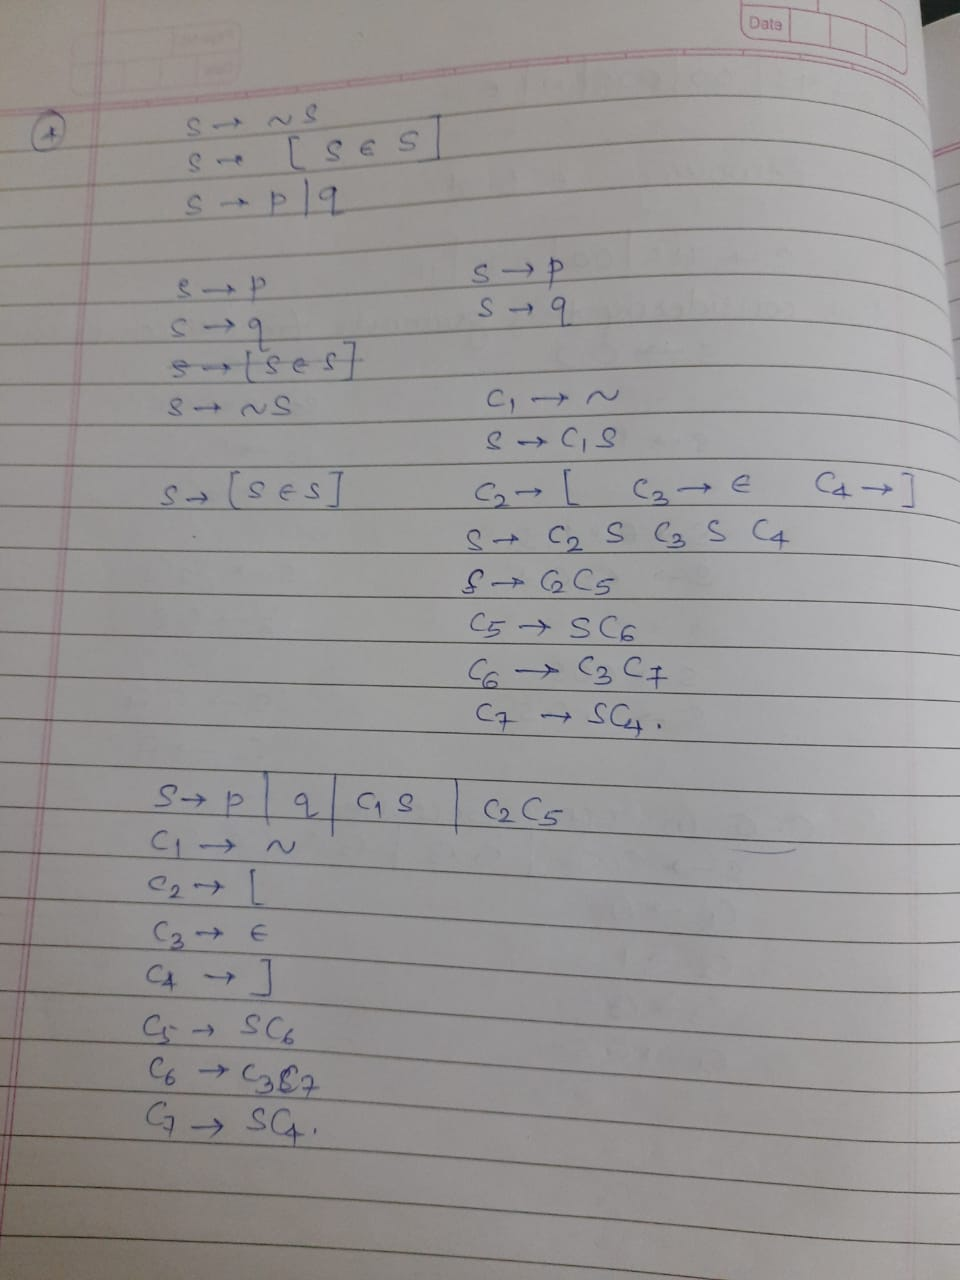 Date
4
S → ~S
S → [S ∈ S]
S → p | q
S → p S → p
S → q S → q
S → [S ∈ S]
S → ~S C1 → ~
S → C1 S
S → [S ∈ S] C2 → [ C3 → ∈ C4 → ]
S → C2 S C3 S C4
S → C2 C5
C5 → S C6
C6 → C3 C7
C7 → S C4.
S → p | q | C1 S | C2 C5
C1 → ~
C2 → [
C3 → ∈
C4 → ]
C5 → S C6
C6 → C3 C7
C7 → S C4.